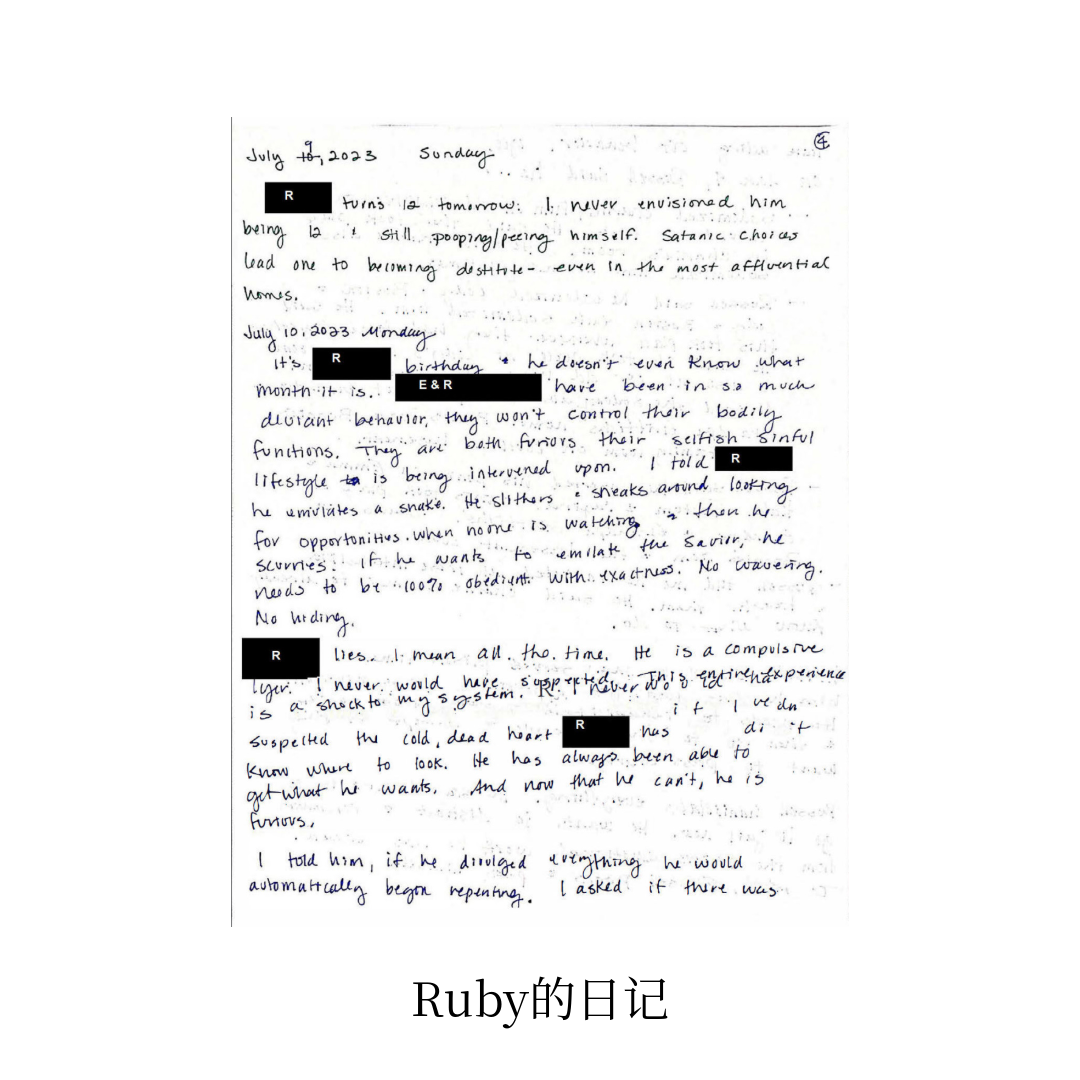 ④
July 9, 2023 Sunday
R turns 12 tomorrow. I never envisioned him
being 12 & still pooping/peeing himself. Satanic choices
lead one to becoming destitute - even in the most affluential
homes.
July 10, 2023 Monday
It's R birthday & he doesn't even know what
month it is. E & R have been in so much
deviant behavior, they won't control their bodily
functions. They are both furiors their selfish sinful
lifestyle is being intervened upon. I told R
he emulates a snake. He slithers & sneaks around looking
for opportunities when no one is watching & then he
scurries. If he wants to emilate the Savior, he
needs to be 100% obedient with exactness. No wavering.
No hiding.
R lies. I mean all the time. He is a compulsive
lyer. I never would have suspected. This entire experience
is a shock to my system. R. I never would have
suspected the cold, dead heart R has if I didn't
know where to look. He has always been able to
get what he wants. And now that he can't, he is
furious.
I told him, if he divulged everything he would
automatically begin repenting. I asked if there was
Ruby的日记